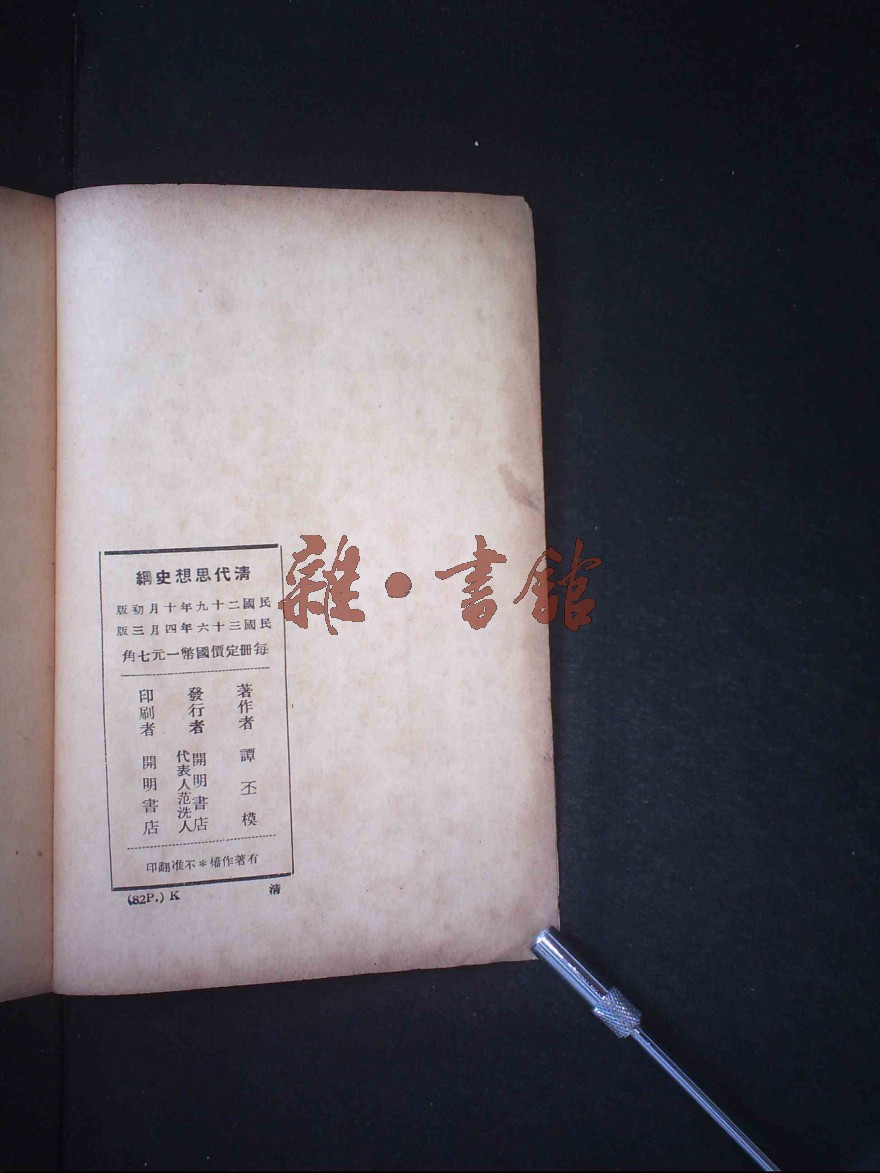 清代思想史綱
民國二十九年十月初版
民國三十六年四月三版
每冊定價國幣一元七角
著作者 譚丕模
發行者 開明書店
代表人范洗人
印刷者 開明書店
有著作權＊不准翻印
清
(82P.) K
雜·書館